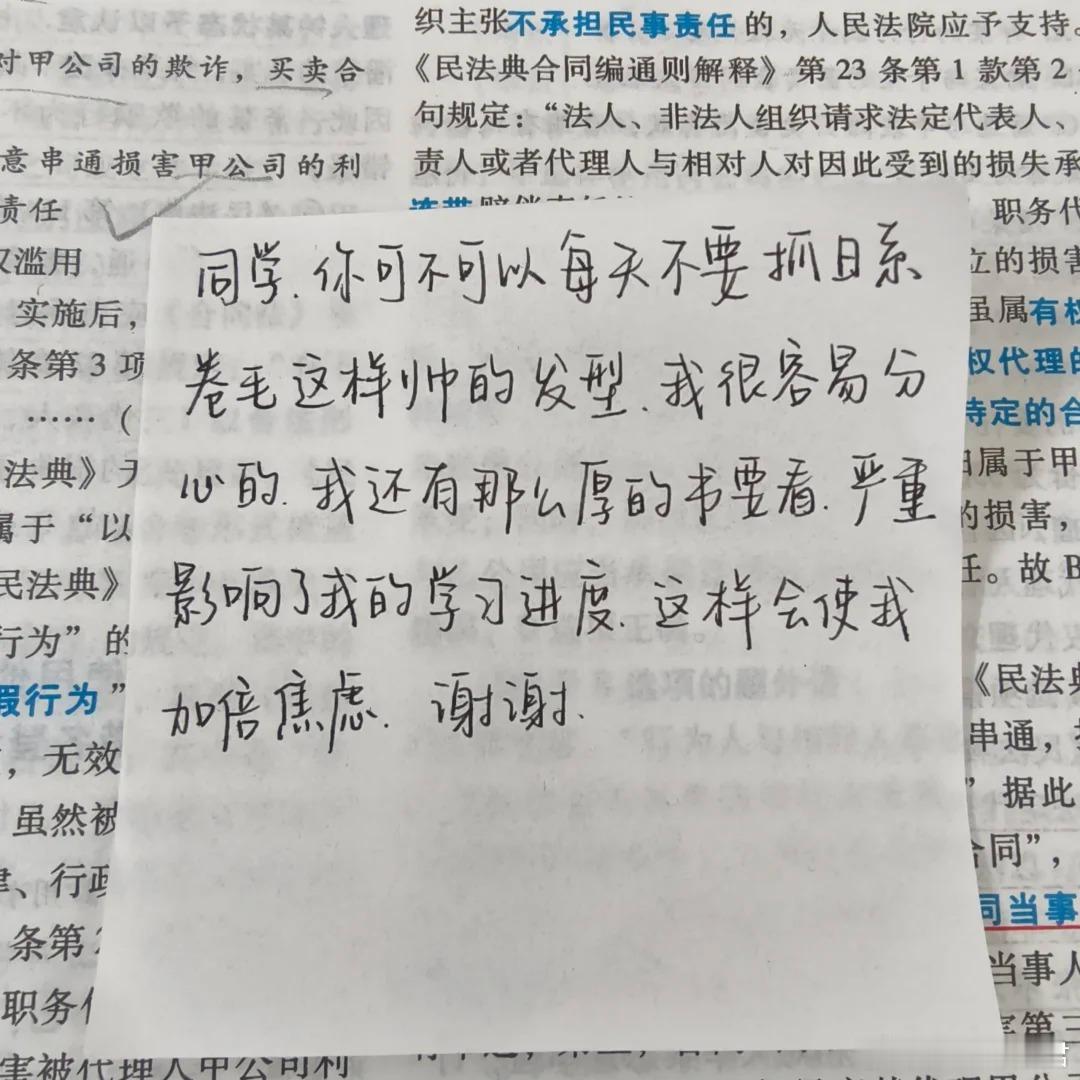 织主张不承担民事责任的，人民法院应予支持。
对甲公司的欺诈，买卖合
《民法典合同编通则解释》第23条第1款第2
句规定：“法人、非法人组织请求法定代表人、
意串通损害甲公司的利
责人或者代理人与相对人对因此受到的损失承
责任
连带赔偿责任
职务代
滥用
立的损害
实施后，
虽属有权
条第3项
权代理的
……（
特定的合
法典》无
属于甲
属于“以
的损害，
民法典》
任。故B
行为”的
《民法典
假行为”
串通，
，无效
”据此
虽然被
合同”，
律、行政
同当事
条第2
当事人
职务代
第三
害被代理人甲公司利
同学.你可不可以每天不要抓日系
卷毛这样帅的发型.我很容易分
心的.我还有那么厚的书要看.严重
影响了我的学习进度.这样会使我
加倍焦虑. 谢谢.